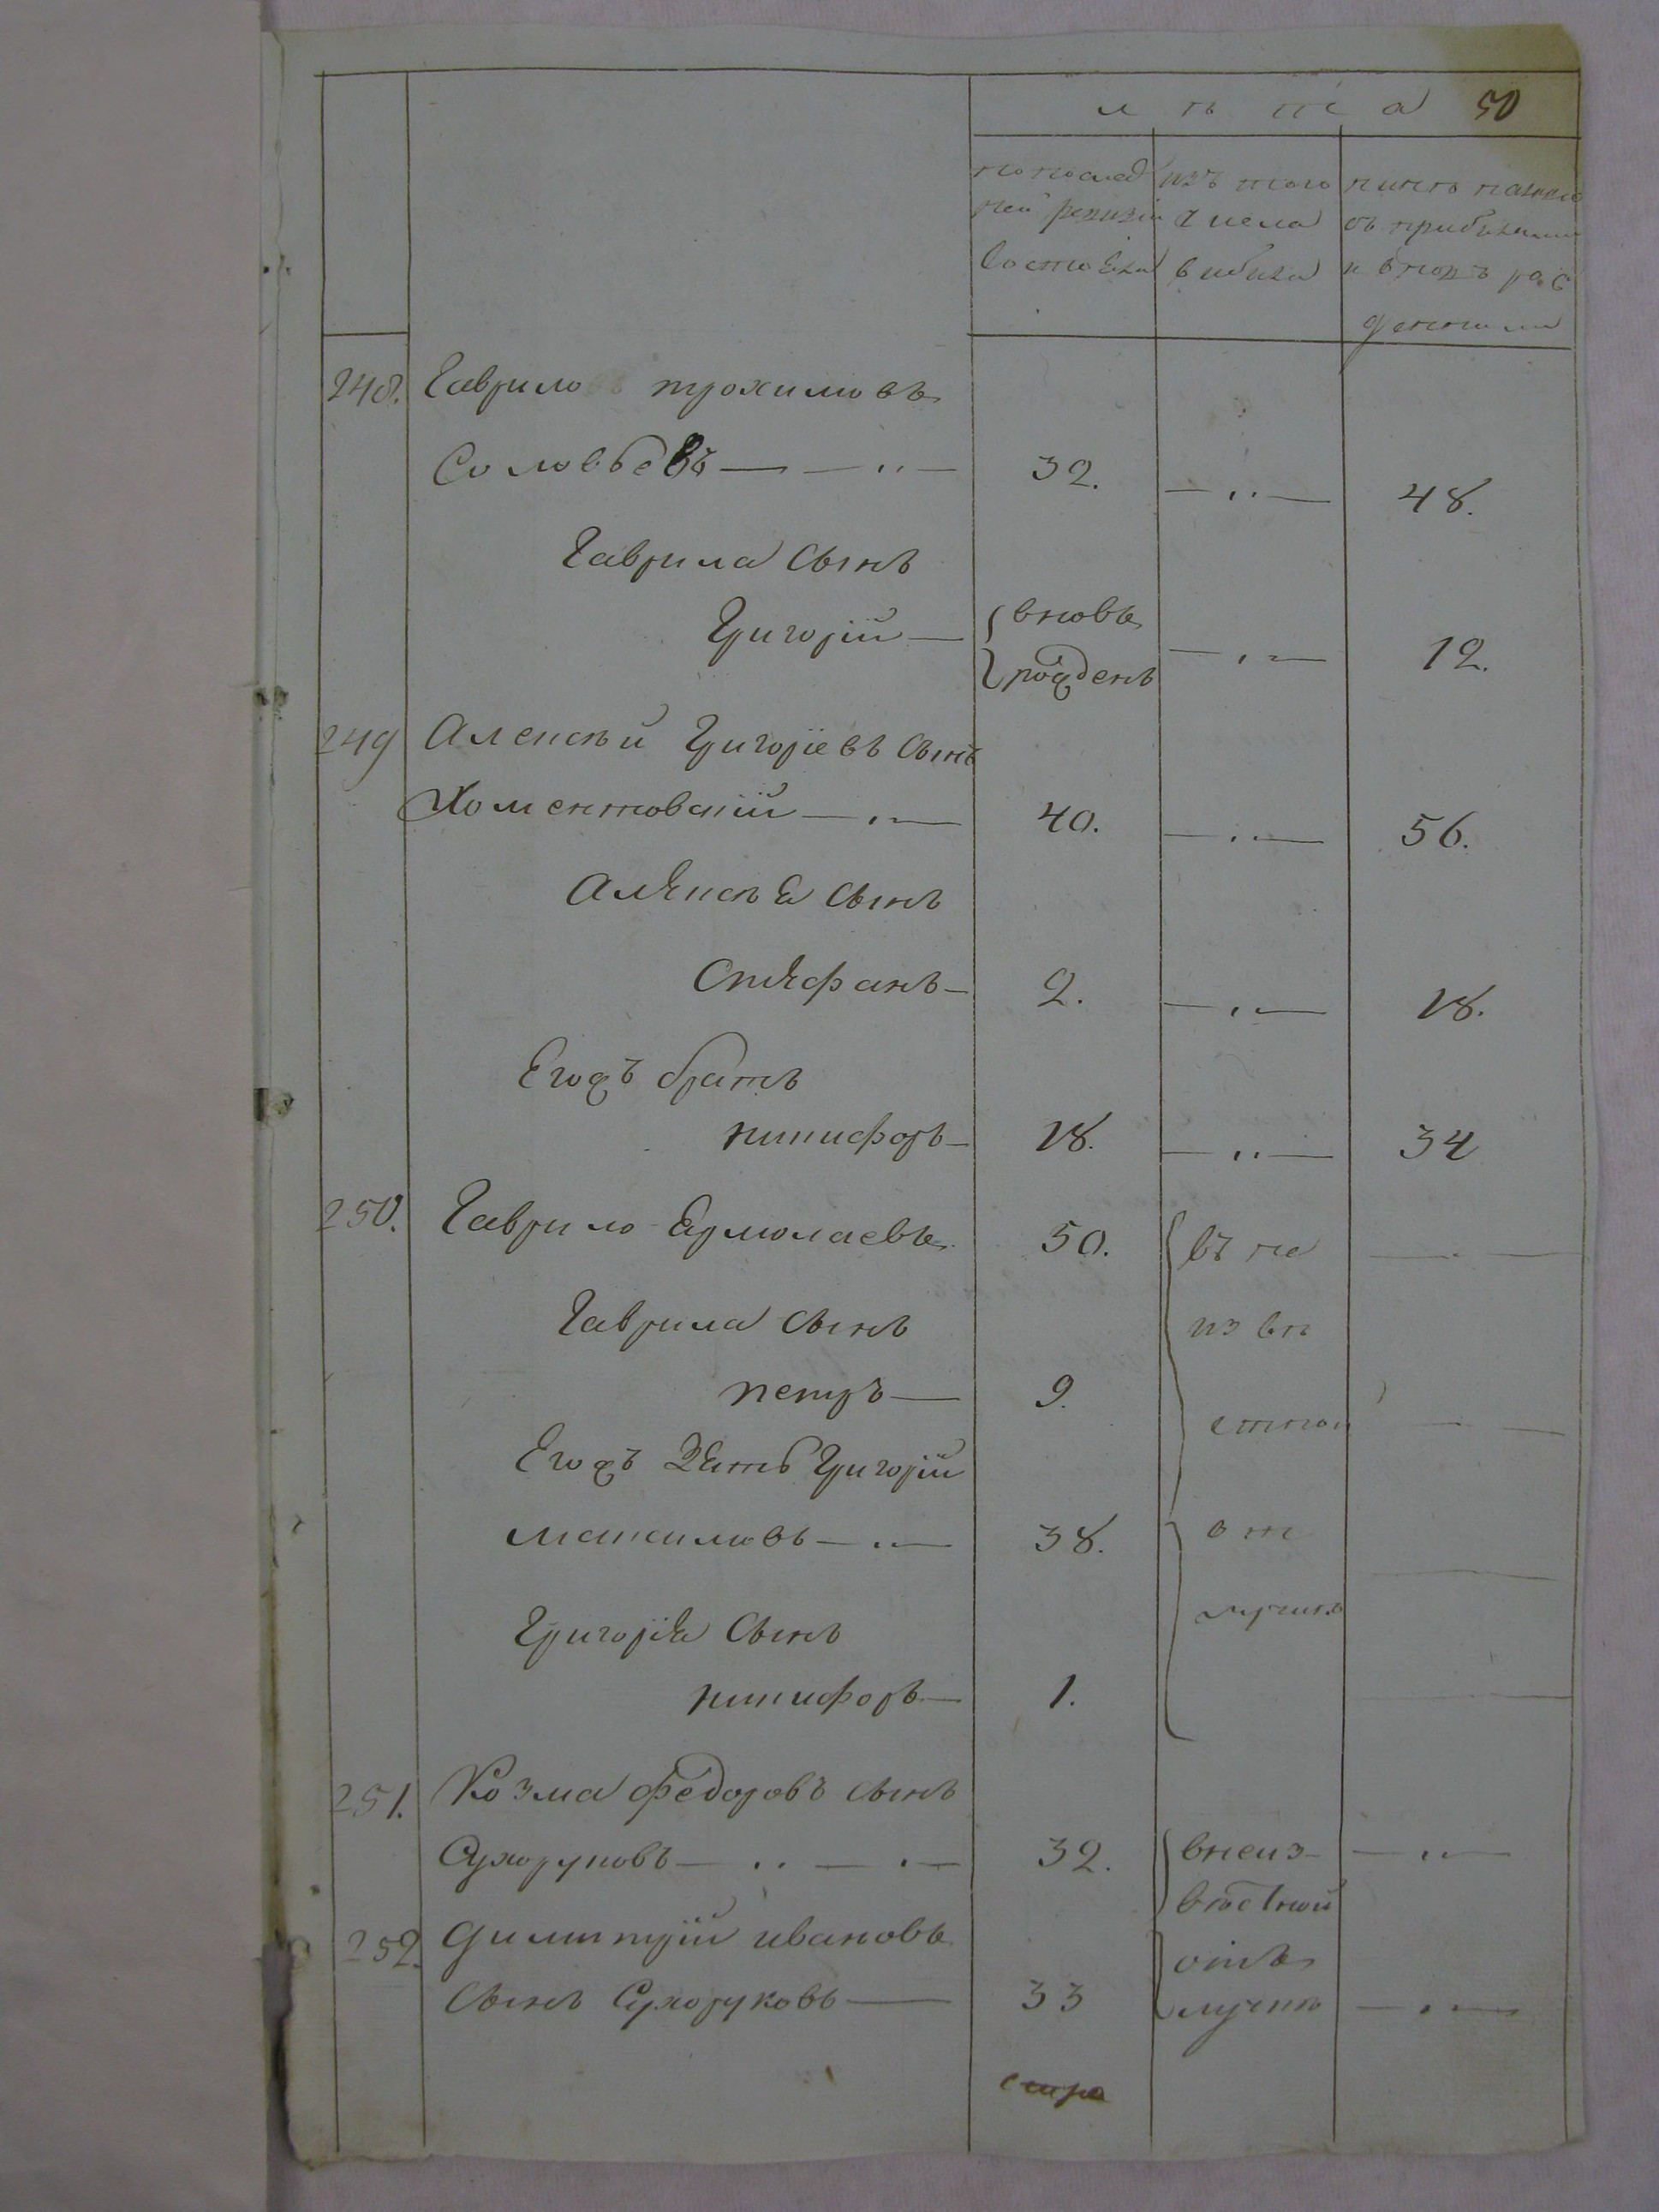 лѣта 50
по послед
ней ревизіи
состояла
изъ того
числа
выбыла
нынѣ на лицо
съ прибылыми
и вновь рож
денными
248. Гаврило Трохимовъ
Соловьевъ 32. 48.
Гаврила сынъ
Григорій вновь рожденъ 12.
249 Алексѣй Григоріевъ сынъ
Хоментовскій 40. 56.
Алексѣя сынъ
Стефанъ 2. 18.
Егожъ братъ
Никифоръ 18. 34
250. Гаврило Ермолаевъ 50. въ не
Гаврила сынъ извѣ
Петръ 9. стной
Егожъ зять Григорій
Максимовъ 38. от
Григорія сынъ лучкѣ
Никифоръ 1.
251. Козма Федоровъ сынъ
Сухоруковъ 32. внеиз-
вѣстной
252. Димитрій Ивановъ отъ
сынъ Сухоруковъ 33 лучкѣ